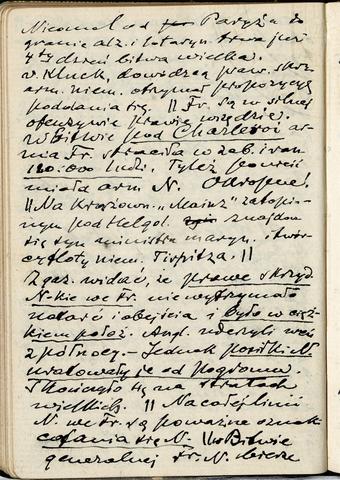 Nieomal od Paryża do
granic alz. i lotaryn. trwa już
4ty dzień bitwa wielka.
v. Kluck, dowódzca praw. skrz.
arm. niem. otrzymał propozycyę
poddania się. || Fr. są w silnej
ofenzywie prawie wszędzie.
W bitwie pod Charleroi ar-
mia Fr. straciła w zab. i ran.
120.000 ludzi. Tyleż ponieść
miała arm N. Okropne!
|| Na Krążown. „Mainz" zatopio-
nym pod Helgol. znajdow.
się syn ministra maryn. i twór-
cy floty niem. Tirpitza. ||
Z gaz. widać, że prawe skrzyd.
N-kie we Fr. nie wytrzymało
natarć i obejścia i było w cięż-
kiem położ. Ang. uderzyli weń
z północy. - Jednak posiłki N.
uratowały je od pogromu.
Skończyło się na stratach
wielkich. || Na całej linii
N. we Fr. są poważne oznaki
cofania się N. || W Bitwie
generalnej Fr. N. bierze